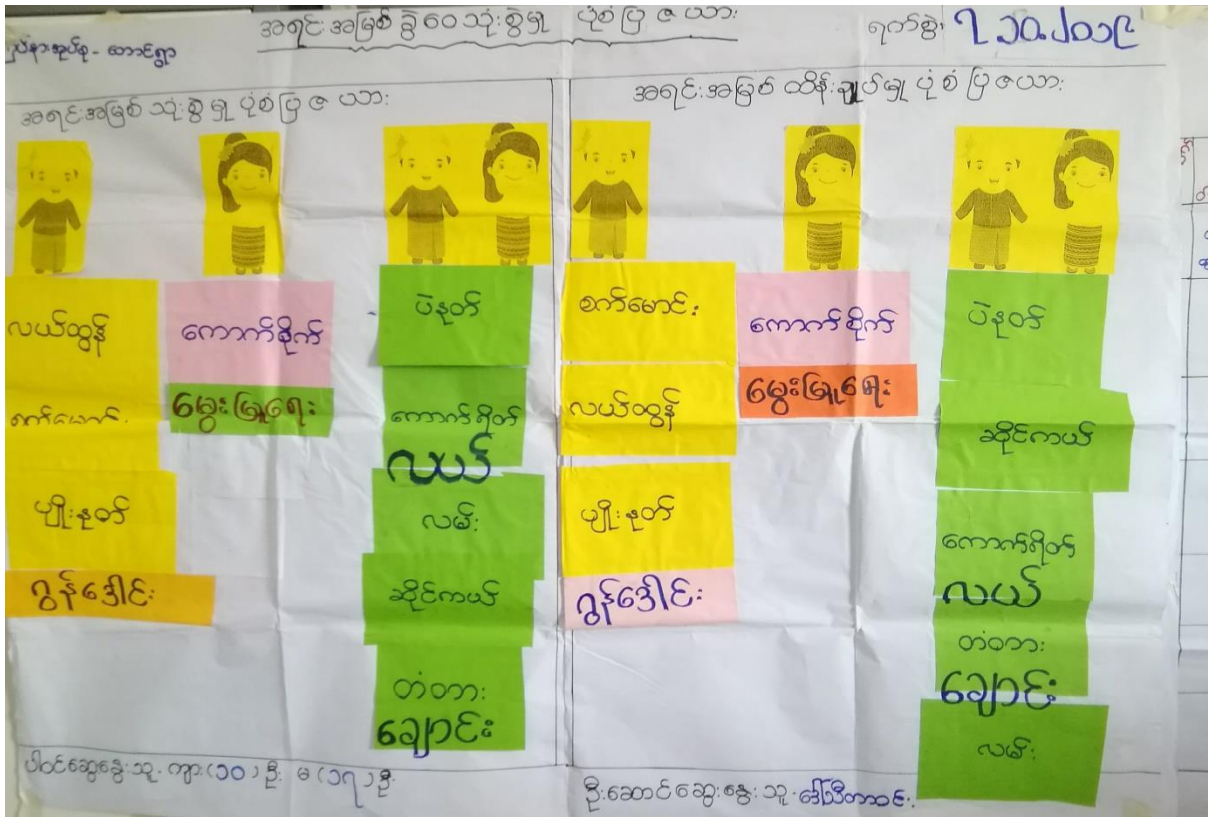 အရင်းအမြစ်ခွဲဝေသုံးစွဲမှု ပုံစံပြဇယား
ရက်စွဲ၊ ၇.၁၀.၂၀၁၉
အရင်းအမြစ်သုံးစွဲမှုပုံစံပြဇယား
လယ်ထွန်
ပျိုးနုတ်
ဂွန်ဒေါင်း
ကောက်စိုက်
မွေးမြူရေး
ပဲနုတ်
ကောက်ရိတ်
လယ်
လမ်း
ဆိုင်ကယ်
တံတား
ချောင်း
အရင်းအမြစ်ထိန်းချုပ်မှုပုံစံပြဇယား
စက်မောင်း
လယ်ထွန်
ပျိုးနုတ်
ဂွန်ဒေါင်း
ကောက်စိုက်
မွေးမြူရေး
ပဲနုတ်
ဆိုင်ကယ်
ကောက်ရိတ်
လယ်
တံတား
ချောင်း
လမ်း
ပါဝင်ဆွေးနွေးသူ-ကျား(၁၀)ဦး မ(၁၇)ဦး
ဦးဆောင်ဆွေးနွေးသူ-